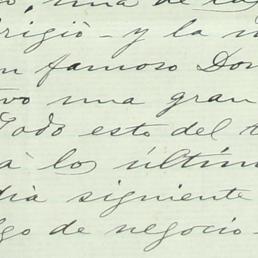 una de las
rigió - y la
famoso Don
vo una gran
Todo esto del
á los últim
dia siguiente
go de negocio